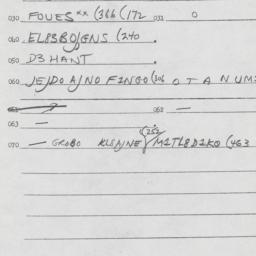 030 FOUES** (366 (172 031 0
040 EL8SBO/GNS (240 .
050 D3 HANT .
060 JE/DO A/NO F2NGO (306 O T A NUM
062 —
063 —
070 — GROBO KLSA/NE (252 M2TL8D2KO (463